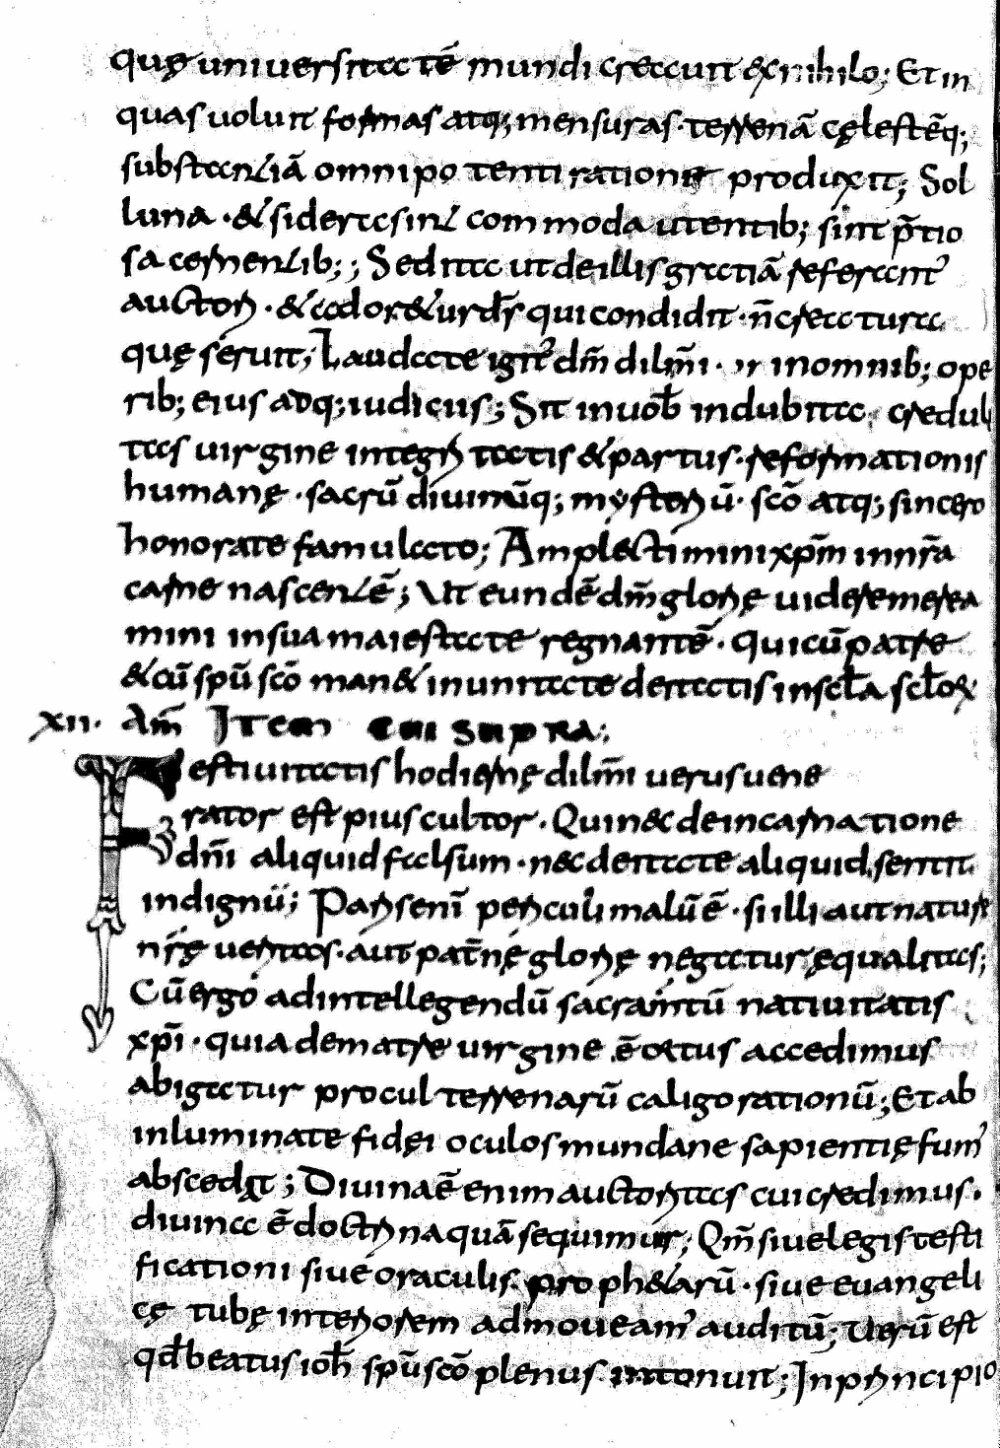 quę uniuersitatē mundi creauit ex nihilo; Et in
quas uoluit formas atq; mensuras · terrenā cęlestēq;
substantiā omnipotenti rationis produxit; Sol
luna · & sidera sint commoda utentib; sint p̄tio
sa cernentib;; Sed ita ut de illis gratiā referant᾿
auctori · & adoret᾿ ds̄ qui condidit · n̄ creatura
quę seruit; Laudate igit᾿ dm̄ dilm̄i · in omnib; ope
rib; eius adq; iudiciis; Sit in uob̄ indubitata credul
tas uirgine integritatis & partus · reformationis
humanę · sacrū diuinūq; mysteriū · scō atq; sincero
honorate famulato; Amplectimini xpm̄ in nr̄a
carne nascentē; Ut eundē dm̄ glorię uidere merea
mini in sua maiestate regnantē · qui cū patre
& cū spū scō man& in unitate deitatis in scl̄a scl̄oꝝ
xii. Am̄ Item cui supra;
Festiuitatis hodiernę dilm̄i uerus uene
rator est pius cultor · Qui nec de incarnatione
dnī aliquid falsum · nec deitate aliquid sentit
indignū; Pari senī periculi malū ē · si illi aut nature
nr̄ę ueritas · aut pat̄nę glorię negatur ęqualitas;
Cū ergo ad intellegendū sacram̄tū natiuitatis
xpī · quia de matre uirgine ē ortus accedimus
abigatur procul terrenarū caligo rationū; Et ab
inluminate fidęi oculos mundane sapientię fum᾿
abscedat; Diuina ē enim auctoritas cui credimus.
diuina ē doctrina quā sequimur; Qm̄ siue legis testi
ficationi siue oraculis proph&arū · siue euangeli
cę tubę interiorem admoueam᾿ auditū; Uerū est
qd̄ beatus ioh̄ spū scō plenus intonuit; In principio